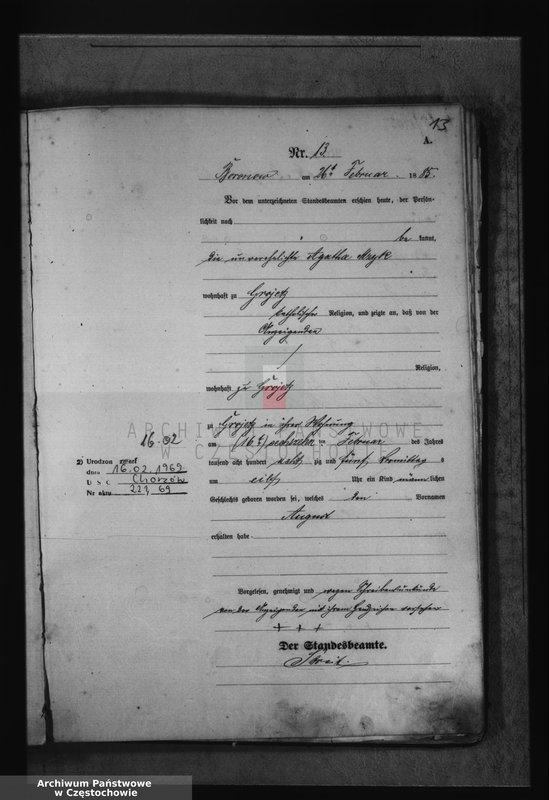 13
A.
Nr. 13
Boronow am 26t Februar 1885.
Vor dem unterzeichneten Standesbeamten erschien heute, der Persön-
lichkeit nach
be kannt,
die unverehelichte Agatha Mzyk
wohnhaft zu Grojetz
katholischer Religion, und zeigte an, daß von der
Anzeigenden
Religion,
wohnhaft zu Grojetz
zu Grojetz in ihrer Wohnung
am (16t) sechszehn ten Februar des Jahres
tausend acht hundert acht zig und fünf Vormittag s
um eilf Uhr ein Kind männ lichen
Geschlechts geboren worden sei, welches den Vornamen
August
erhalten habe.
16.02
2) Urodzon
dnia 16.02.1969
U S C Chorzów
Nr aktu 221/69
Vorgelesen, genehmigt und wegen Schreibensunkunde
von der Anzeigenden mit ihrem Handzeichen versehen
+ + +
Der Standesbeamte.
ARCHIWUM PAŃSTWOWE
W CZĘSTOCHOWIE
Archiwum Państwowe
w Częstochowie